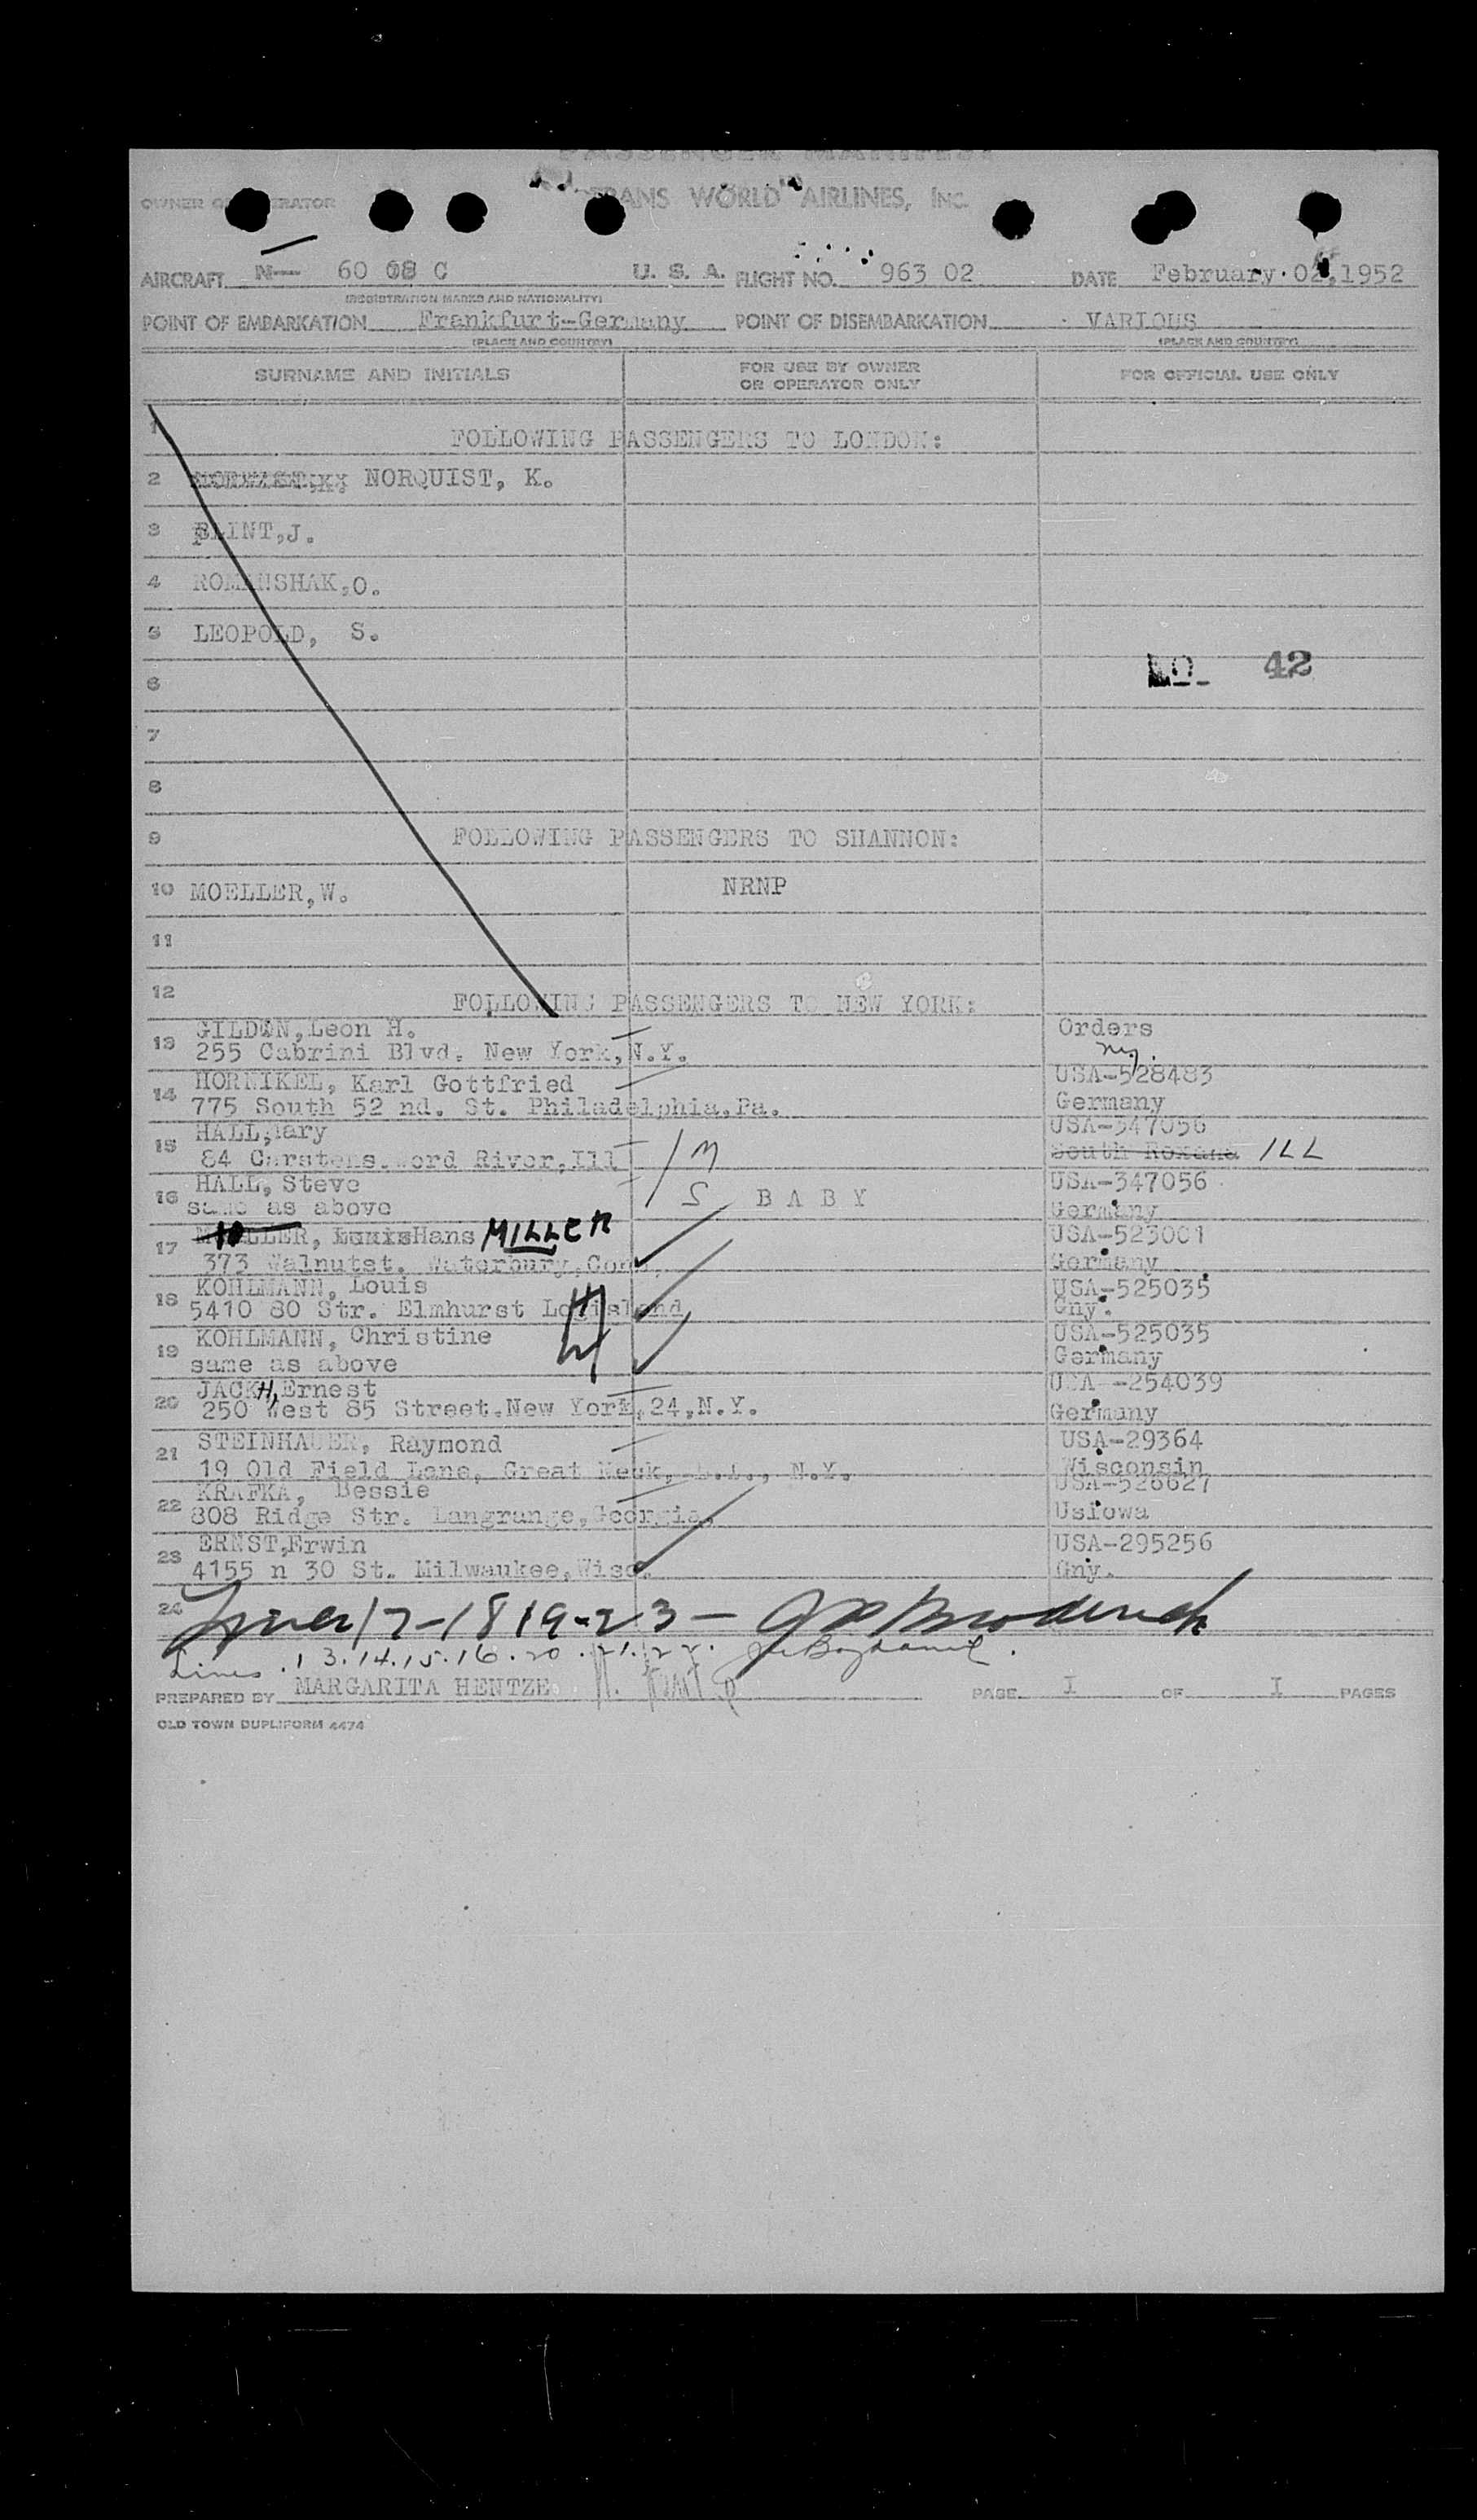 PASSENGER MANIFEST
TRANS WORLD AIRLINES, INC.
OWNER OR OPERATOR
AIRCRAFT N— 60 08 C U. S. A. FLIGHT NO. 963 02 DATE February 02, 1952
(REGISTRATION MARKS AND NATIONALITY)
POINT OF EMBARKATION Frankfurt-Germany POINT OF DISEMBARKATION VARIOUS
(PLACE AND COUNTRY) (PLACE AND COUNTRY)
SURNAME AND INITIALS FOR USE BY OWNER OR OPERATOR ONLY FOR OFFICIAL USE ONLY
1 FOLLOWING PASSENGERS TO LONDON:
2 NORQUIST, K.
3 FLINT,J.
4 ROMANSHAK,O.
5 LEOPOLD, S.
6 42
7
8
9 FOLLOWING PASSENGERS TO SHANNON:
10 MOELLER,W. NRNP
11
12 FOLLOWING PASSENGERS TO NEW YORK:
13 GILDEN,Leon H. Orders
255 Cabrini Blvd. New York,N.Y. ny.
14 HORNIKEL, Karl Gottfried USA-528483
775 South 52 nd. St. Philadelphia,Pa. Germany
15 HALL,Mary USA-347056
84 Carstens.Word River,Ill M South Roxana ILL
16 HALL, Steve USA-347056
same as above S BABY Germany
17 MOELLER, Louis Hans MILLER USA-523001
373 Walnutst. Waterbury,Conn. Germany
18 KOHLMANN, Louis USA-525035
5410 80 Str. Elmhurst Longisland Gny.
19 KOHLMANN, Christine USA-525035
same as above Germany
20 JACKH,Ernest USA -254039
250 West 85 Street.New York,24,N.Y. Germany
21 STEINHAUER, Raymond USA-29364
19 Old Field Lane, Great Neck, L.I., N.Y. Wisconsin
22 KRAFKA, Bessie USA-526627
808 Ridge Str. Langrange,Georgia, Usiowa
23 ERNST,Erwin USA-295256
4155 n 30 St. Milwaukee,Wisc. Gny.
24 Lines 17-18 19-23 —
Lines . 13.14.15.16.20.21.22.
PREPARED BY MARGARITA HENTZE PAGE I OF I PAGES
OLD TOWN DUPLIFORM 4474